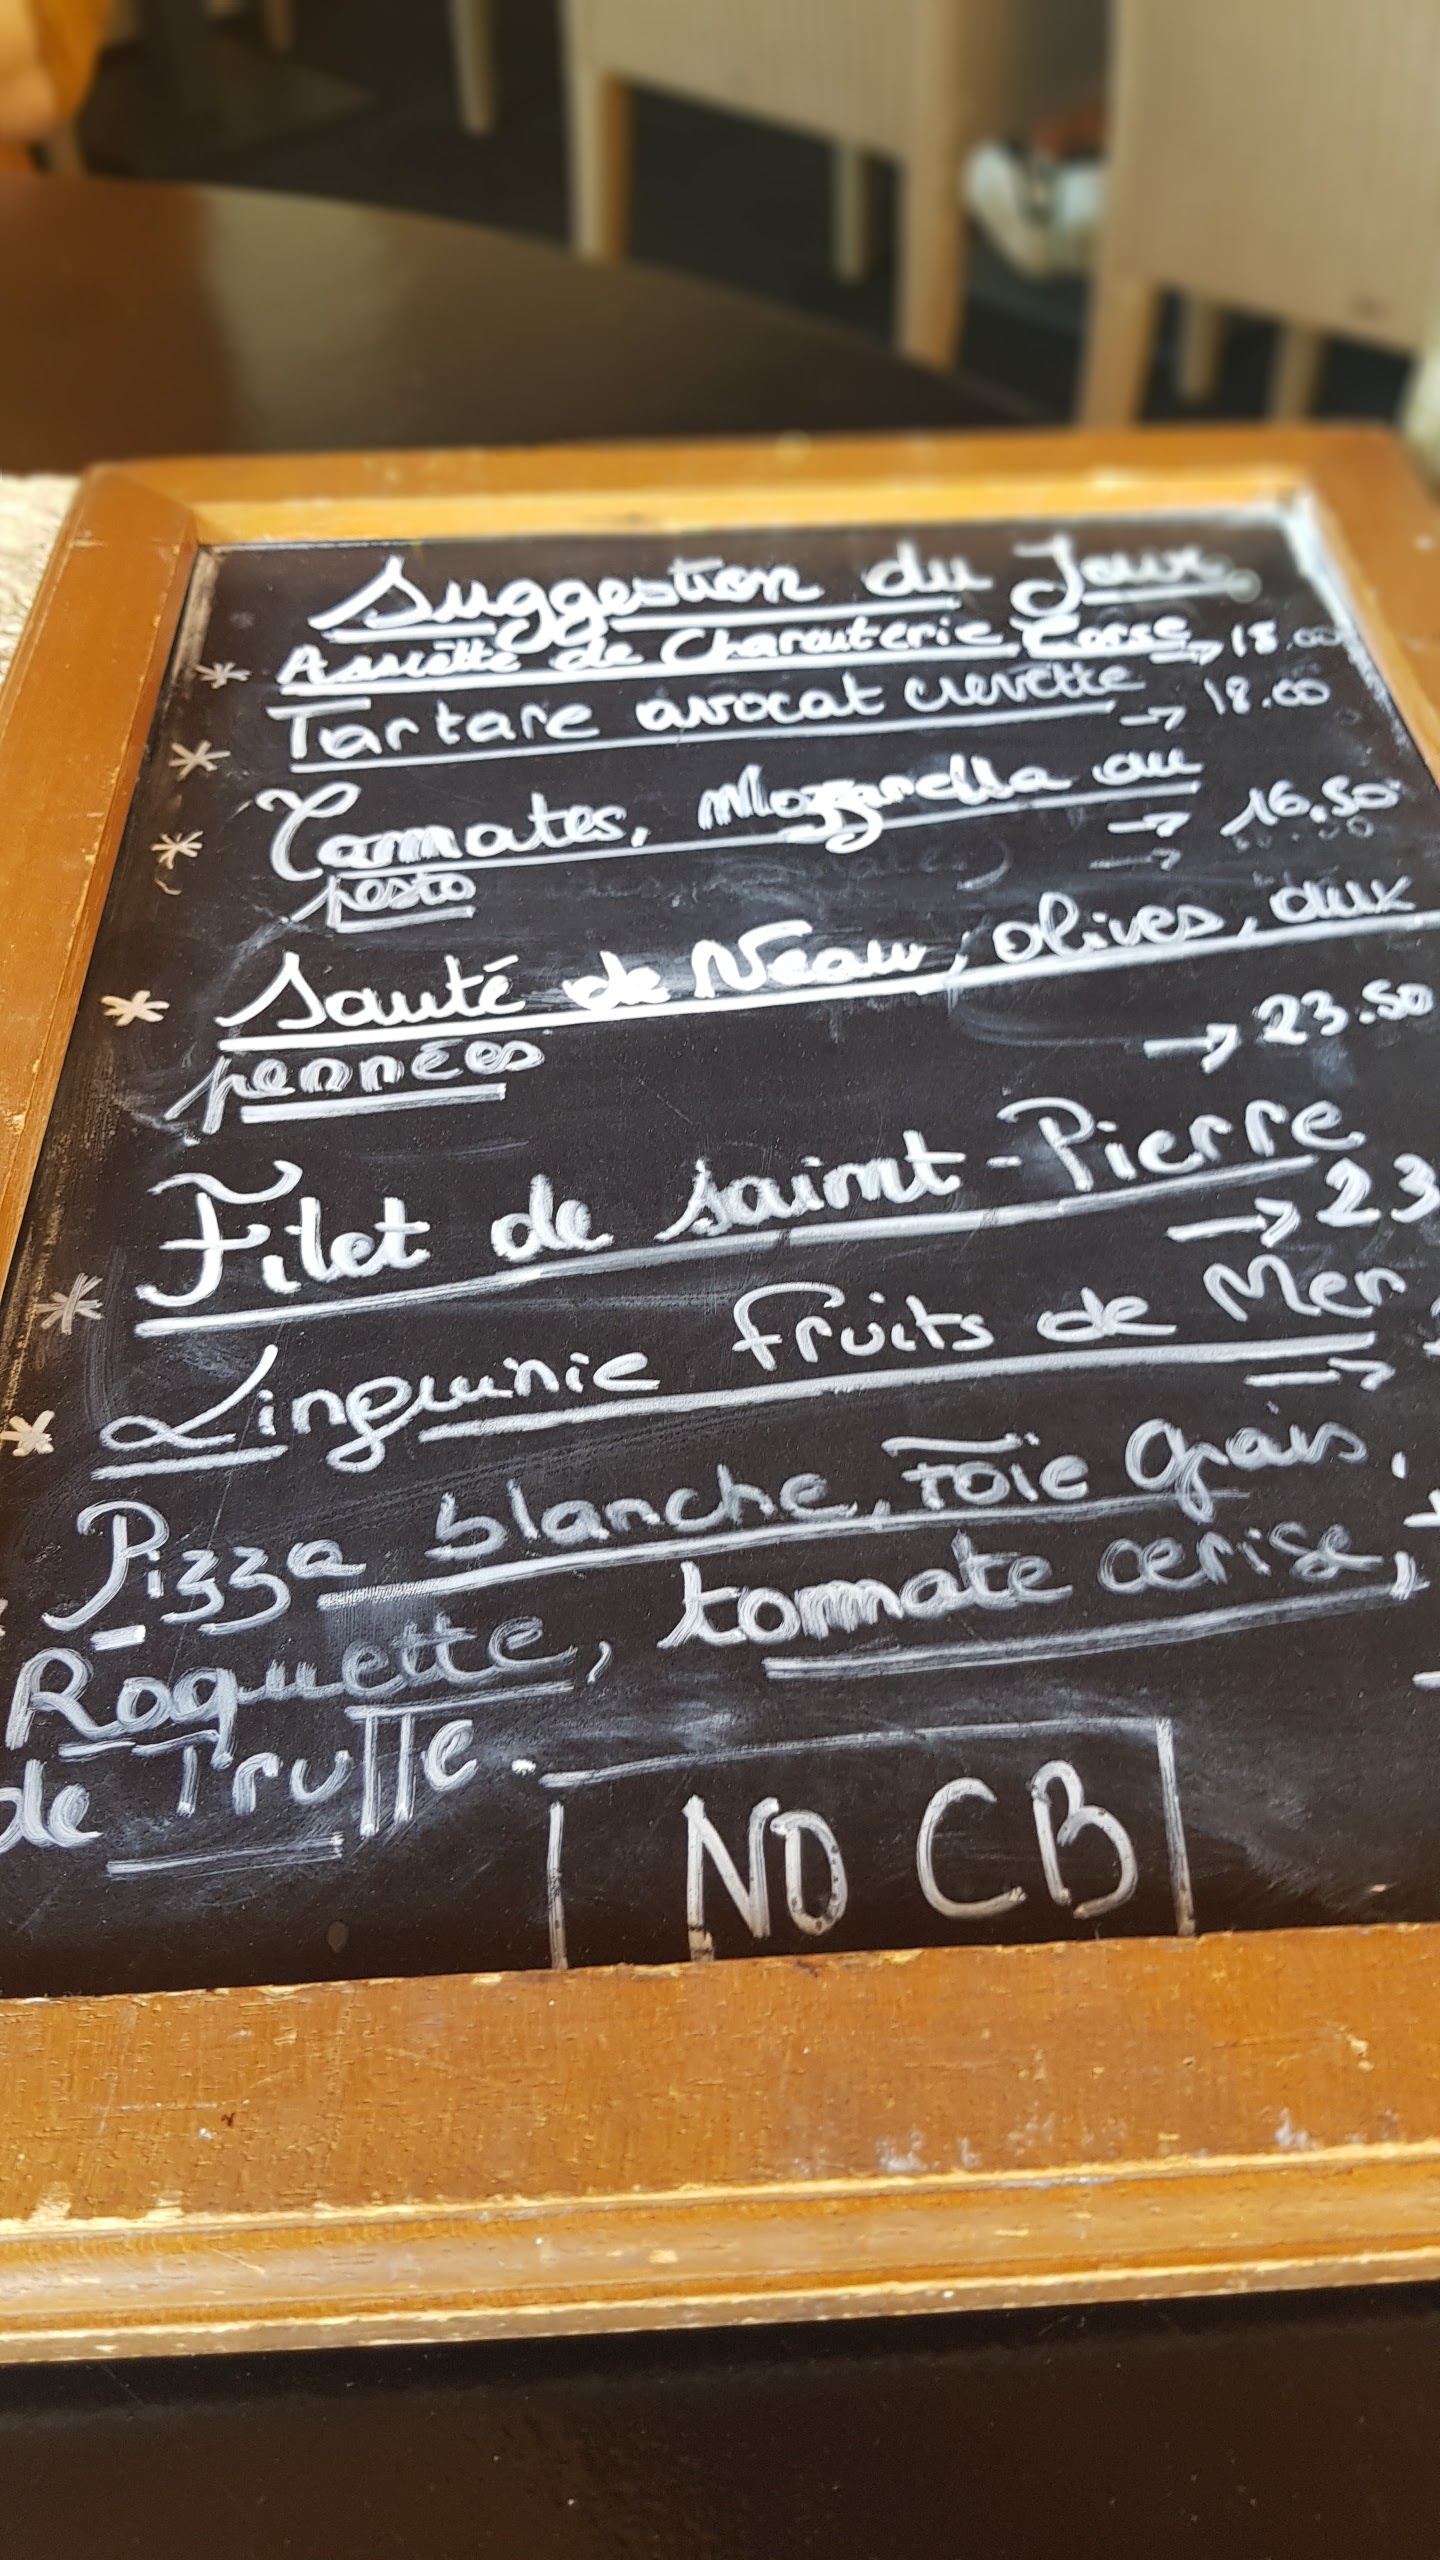 Suggestion du Jour.
* Assiette de Charcuterie Corse → 18.00
* Tartare avocat crevette → 18.00
* Tomates, Mozzarella au
pesto → 16.50
* Sauté de Veau, olives, aux
pennées → 23.50
* Filet de saint-Pierre
→ 23
* Linguinie fruits de Mer
→
Pizza blanche, Foïe Gras,
Roquette, tomate cerise,
de Truffe.
NO CB